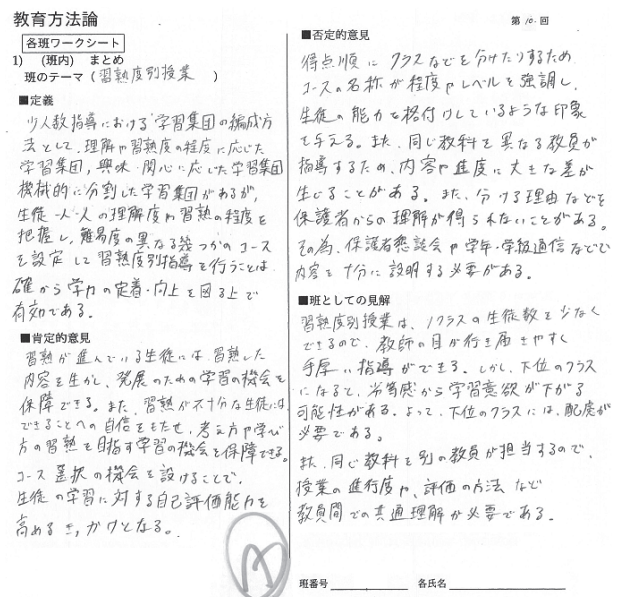 教育方法論
第10.回
各班ワークシート
1) (班内) まとめ
班のテーマ(習熟度別授業 )
■定義
少人数指導における学習集団の編成方
法として、理解や習熟度の程度に応じた
学習集団,興味・関心に応じた学習集団
機械的に分割した学習集団があるが,
生徒一人一人の理解度や習熟の程度を
把握し、難易度の異なる幾つかのコース
を設定して習熟度別指導を行うことは
確かな学力の定着・向上を図る上で
有効である。
■肯定的意見
習熟が進んでいる生徒には習熟した
内容を生かし、発展のための学習の機会を
保障できる。また、習熟が不十分な生徒には、
できることへの自信をもたせ、考え方や学び
方の習熟を目指す学習の機会を保障できる。
コース選択の機会を設けることで、
生徒の学習に対する自己評価能力を
高めるきっかけとなる。
A
■否定的意見
得点順にクラスなどを分けたりするため
コースの名称が程度やレベルを強調し、
生徒の能力を格付けしているような印象
を与える。また、同じ教科を異なる教員が
指導するため、内容や進度に大きな差が
生じることがある。また、分ける理由などを
保護者からの理解が得られないことがある。
その為、保護者懇談会や学年・学級通信などで
内容を十分に説明する必要がある。
■班としての見解
習熟度別授業は、1クラスの生徒数を少なく
できるので、教師の目が行き届きやすく
手厚い指導ができる。しかし、下位のクラス
になると、劣等感から学習意欲が下がる
可能性がある。よって、下位のクラスには、配慮が
必要である。
また、同じ教科を別の教員が担当するので、
授業の進行度や、評価の方法など
教員間での共通理解が必要である。
班番号 各氏名